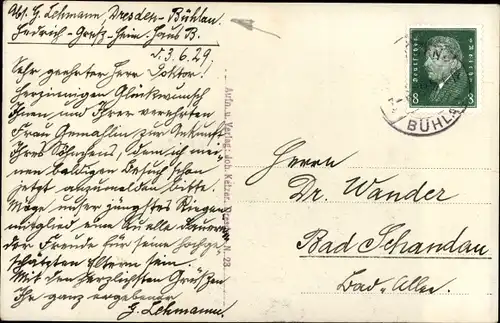 Abs. G. Lehmann, Dresden-Bühlau.
Hedrich-Grefz-Heim. Haus B.
d. 3.6.29.
Sehr geehrter Herr Doktor!
Herzinnigen Glückwunsch
Ihnen und Ihrer verehrten
Frau Gemahlin zur Ankunft
Ihres Söhnchens, dem ich mei-
nen baldigen Besuch schon
jetzt anzumelden bitte.
Möge unser jüngstes Riegen-
mitglied eine Quelle dauern-
der Freude für seine hochge-
schätzten Eltern sein.
Mit den herzlichsten Grüßen
Ihr ganz ergebener
G. Lehmann.
Aufn. u. Verlag: Joh. Ketzer, Dresden N. 23.
Deutsches Reich
8 8
BÜHLAU
Herrn
Dr. Wander
Bad Schandau
Bad-Allee.